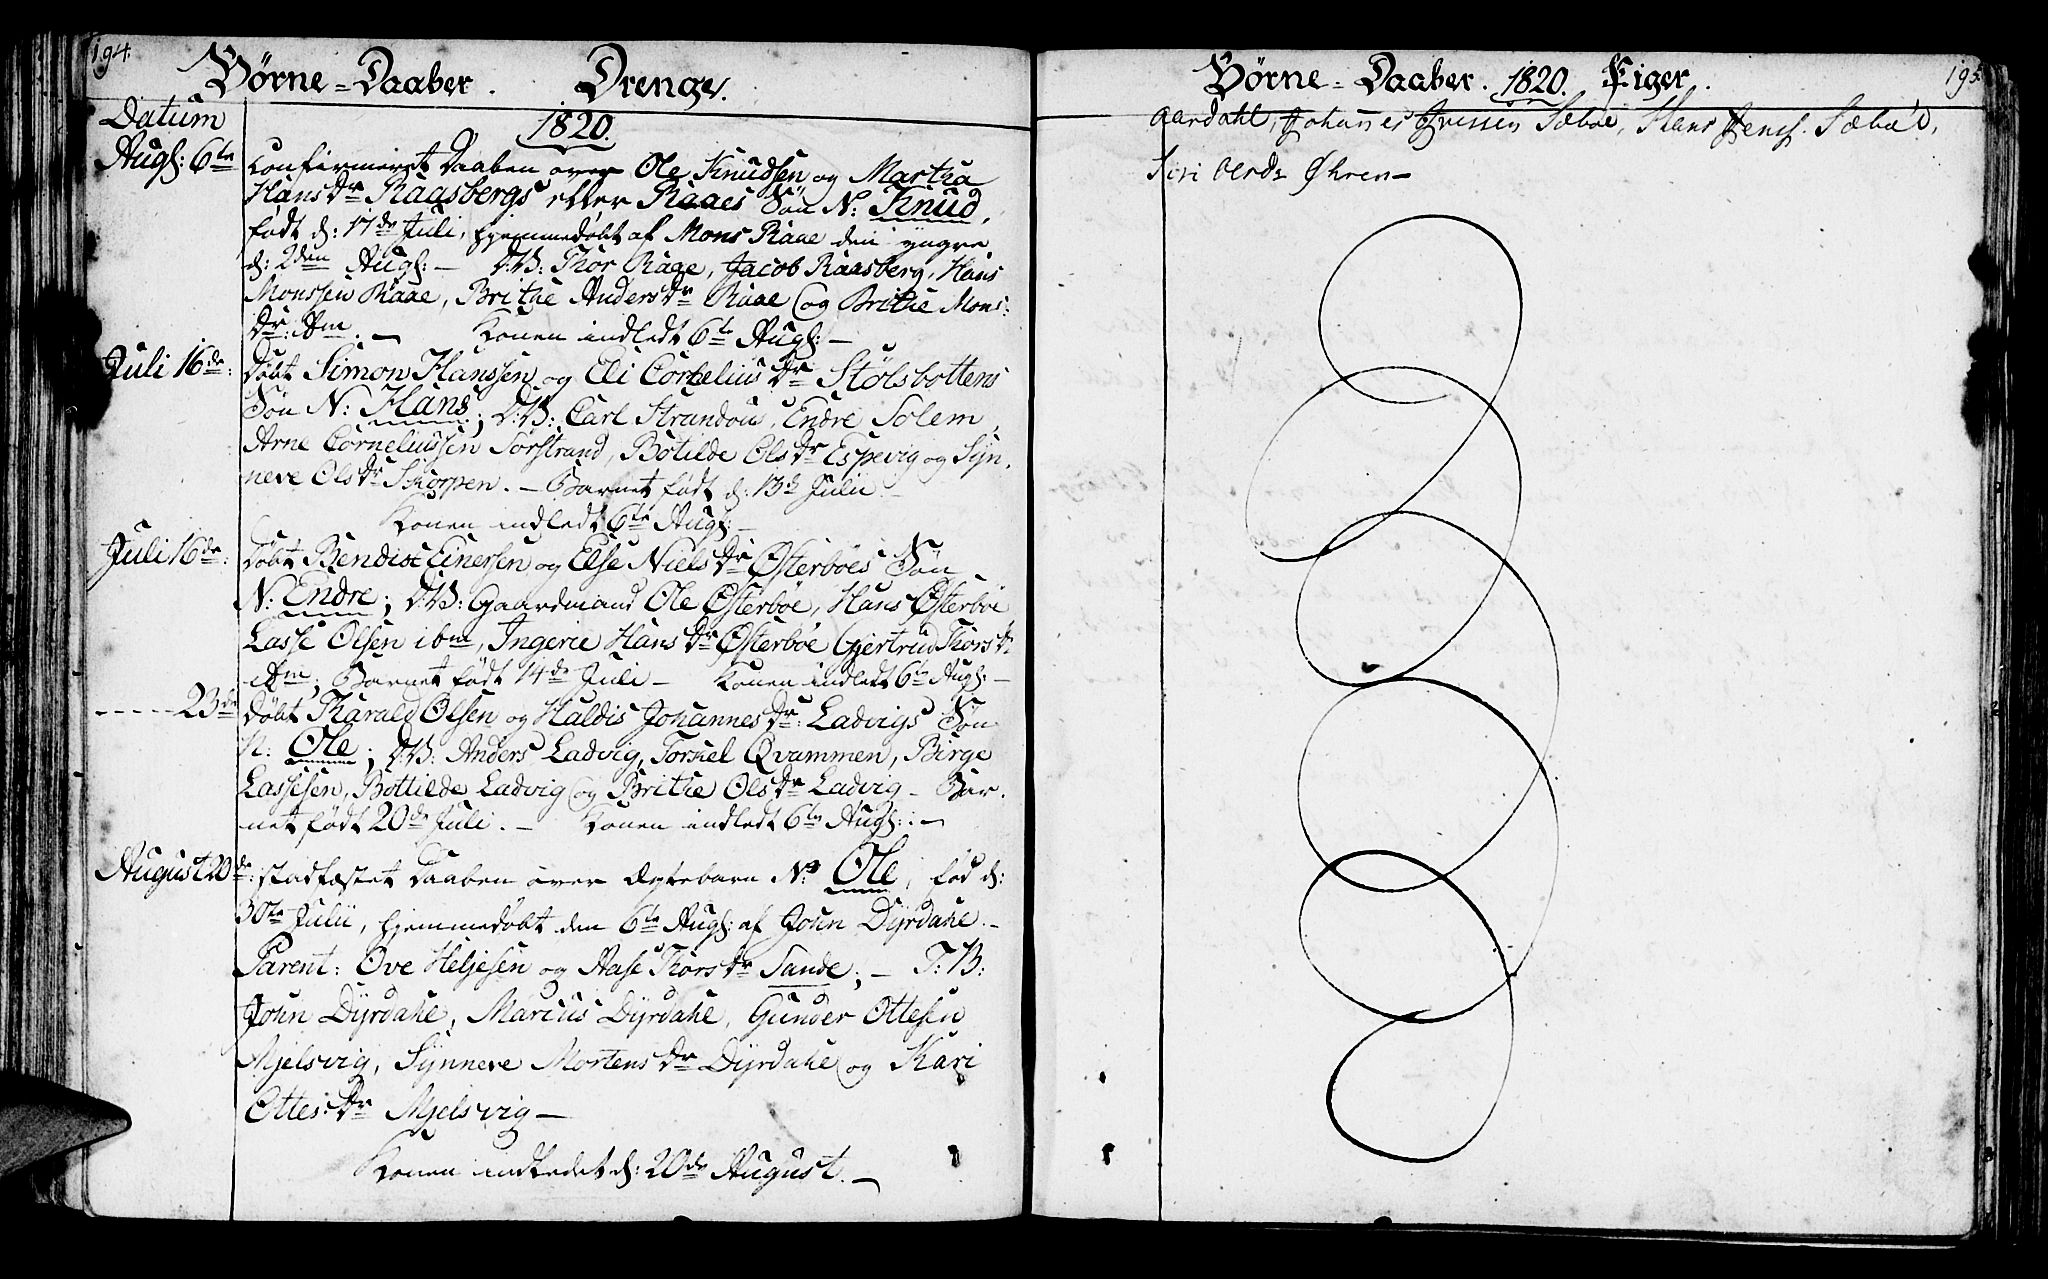 194.
Börne-Daaber. Drenge.
Datum
1820.
Augs: 6te Confirmeret Daaben over Ole Knudsen og Martha
Hansdr Raasbergs eller Raaes Søn N: Knud,
født d: 17de Juli, hjemmedøbt af Mons Raae den yngre
d: 2den Augs: — T:B: Thor Raae, Jacob Raasberg, Hans
Monssen Raae, Brithe Andersdr Raae og Brithe Mons:
dr: ibm. — Konen indledt 6te Augs: —
Juli 16de: Døbt Simon Hanssen og Eli Corneliusdr Stølsbottens
Søn N: Hans; T:B: Carl Strandou, Endre Solem,
Arne Corneliussen Sørstrand, Botilde Olsdr Espevig og Syn,
neve Olsdr Skorpen. — Barnet født d: 13d Julii —
Konen indledt 6te Augs: —
Juli 16de: Døbt Bendix Einersen og Else Nielsdr Østerböes Søn
N: Endre; T:B: Gaardmand Ole Østerböe, Hans Østerböe
Lasse Olsen ibm, Ingerie Hansdr Østerböe Gjertrud Thorsdr
ibm; Barnet født 14de Juli — Konen indledt 6te Augs: —
- - - - - 23de Døbt Tharald Olsen og Haldis Johannesdr: Ladvigs Søn
N: Ole; T:B: Anders Ladvig, Torkel Qvammen, Birge
Lassesen, Bottilde Ladvig og Brithe Olsdr Ladvig — Bar,
net født 20de Juli. — Konen indledt 6te Augs: —
August 20de: stadfæstet Daaben over Ægtebarn N: Ole, fød d:
30te Julii, hjemmedøbt den 6te Augs: af John Dyrdahl. —
Parent: Ove Heljesen og Aase Thorsdr Sande; — T:B:
John Dyrdahl, Marcus Dyrdahl, Gunder Ottesen
Mjelsvig, Synneve Mortensdr Dyrdahl og Kari
Ottes:dr Mjelsvig —
Konen indledet d: 20de August. —
Börne-Daaber. 1820. Piger. 195
aardahl, Johannes Iverssen Sæböe, Hans Jens. Sæbö'e,
Siri Øhren —